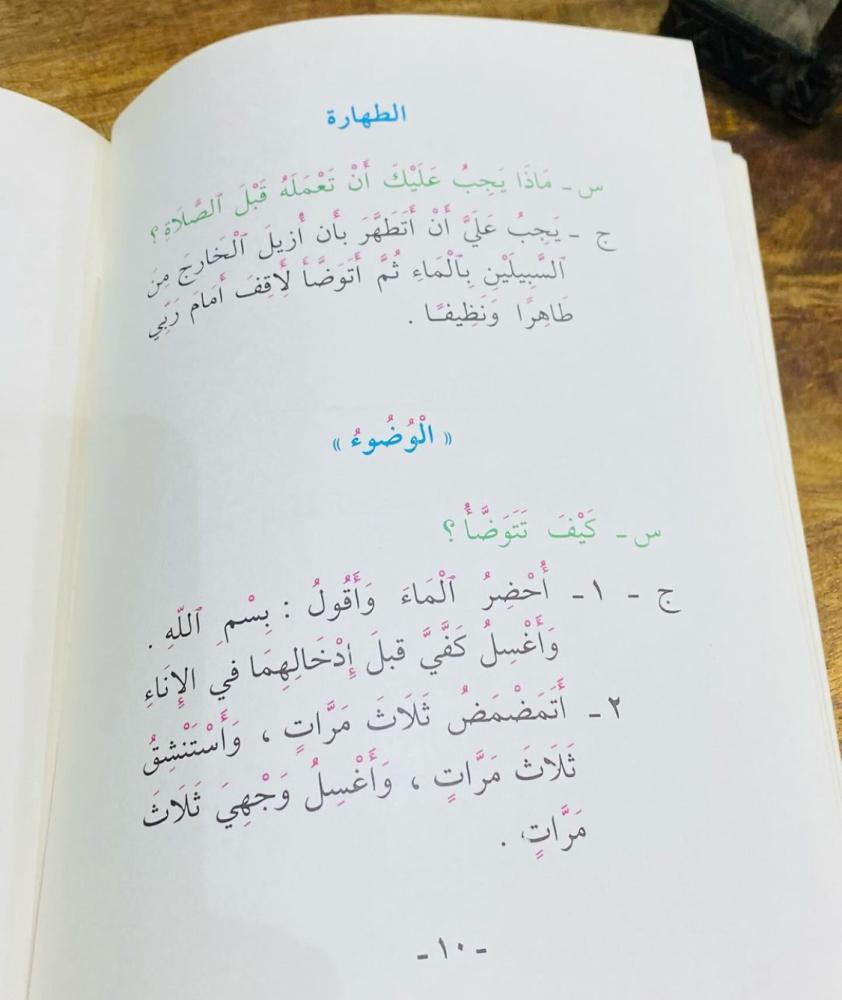 الطهارة
س ـ مَاذَا يَجِبُ عَلَيْكَ أَنْ تَعْمَلَهُ قَبْلَ ٱلصَّلَاةِ؟
ج ـ يَجِبُ عَلَيَّ أَنْ أَتَطَهَّرَ بِأَن أُزِيلَ ٱلْخَارِجَ مِنَ
ٱلسَّبِيلَيْنِ بِٱلْمَاءِ ثُمَّ أَتَوَضَّأَ لِأَقِفَ أَمَامَ رَبِّي
طَاهِرًا وَنَظِيفًا .
« الْوُضُوءُ »
س ـ كَيْفَ تَتَوَضَّأُ؟
ج - ١ - أُحْضِرُ ٱلْمَاءَ وَأَقُولُ : بِسْمِ ٱللّٰهِ .
وَأَغْسِلُ كَفَّيَّ قبلَ إِدْخَالِهِمَا في الإِنَاءِ
٢ ـ أَتَمَضْمَضُ ثَلَاثَ مَرَّاتٍ ، وَأَسْتَنْشِقُ
ثَلَاثَ مَرَّاتٍ ، وَأَغْسِلُ وَجْهِيَ ثَلَاثَ
مَرَّاتٍ .
ـ ١٠ ـ